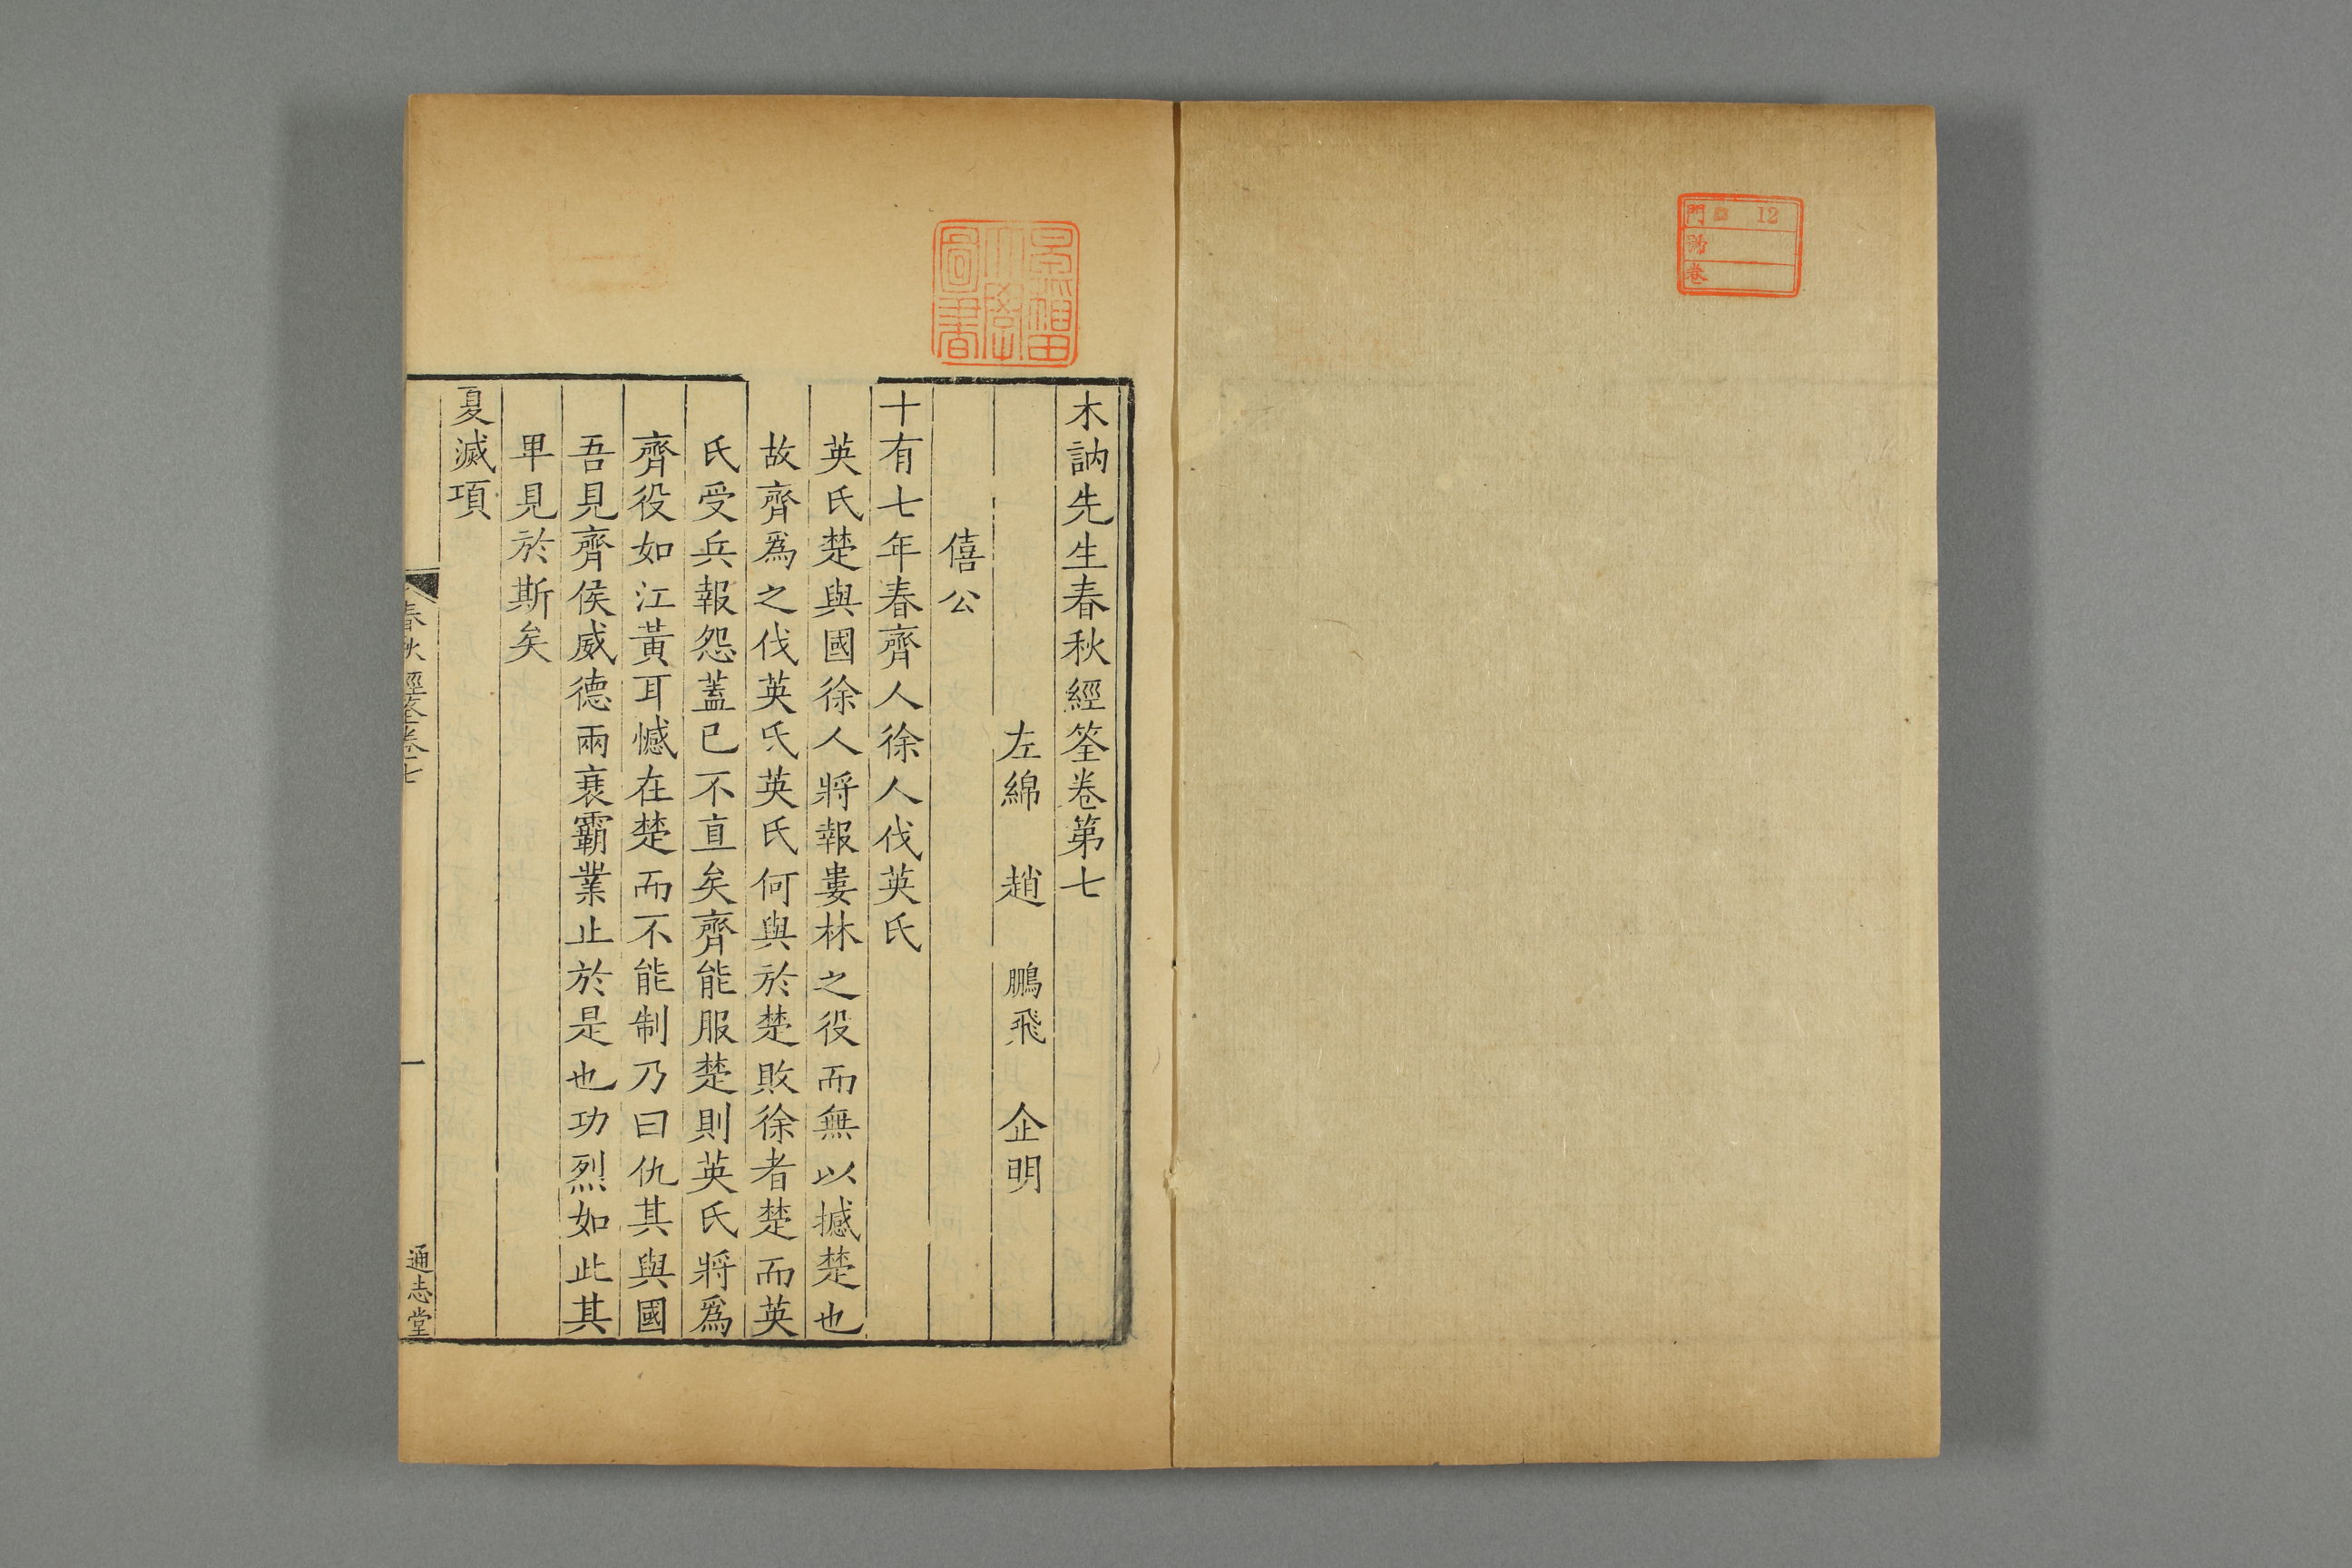 門 12
號
卷
早稲田大學圖書
木訥先生春秋經筌卷第七
左綿 趙 鵬飛 企明
僖公
十有七年春齊人徐人伐英氏
英氏楚與國徐人將報婁林之役而無以撼楚也
故齊爲之伐英氏英氏何與於楚敗徐者楚而英
氏受兵報怨蓋已不直矣齊能服楚則英氏將爲
齊役如江黃耳憾在楚而不能制乃曰仇其與國
吾見齊侯威德兩衰霸業止於是也功烈如此其
畢見於斯矣
夏滅項
春秋經筌卷七
一
通志堂